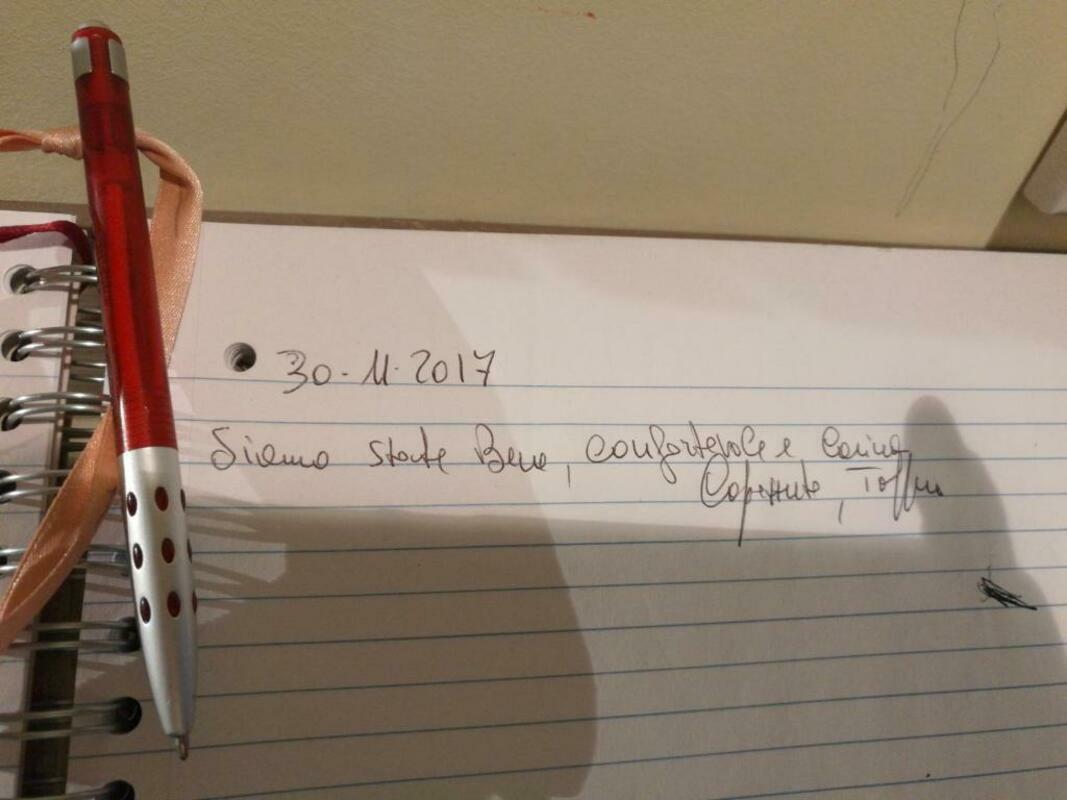 30.11.2017
Siamo state Bene, confortevole e Carina